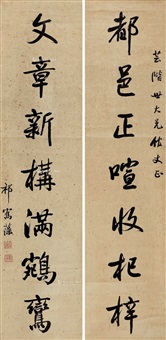 芸階世大兄啟丈正
都邑正喧收杞梓
文章新構滿鵷鸞
祁寯藻